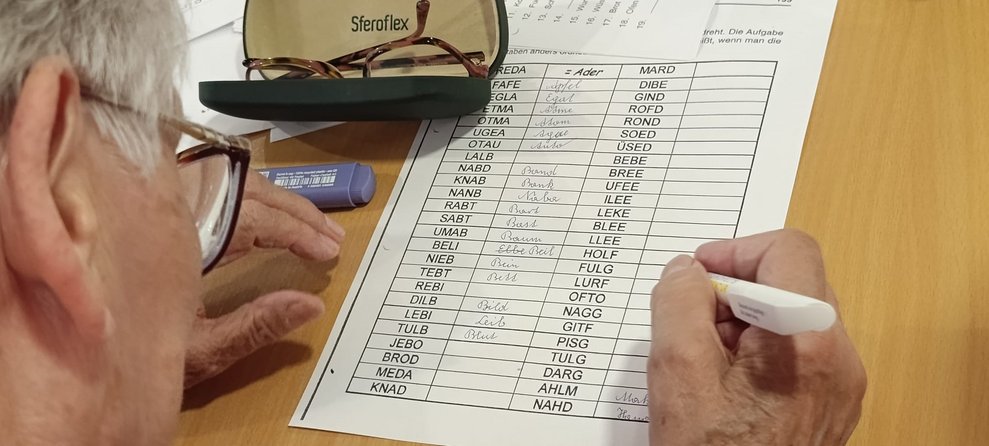 Sferoflex
dreht. Die Aufgabe
wenn man die
REDA = Ader MARD
FAFE DIBE
EGLA Egal GIND
ETMA ROFD
OTMA Atom ROND
UGEA Auge SOED
OTAU Auto ÜSED
LALB BEBE
NABD Band BREE
KNAB Bank UFEE
NANB ILEE
RABT Bart LEKE
SABT Bast BLEE
UMAB Baum LLEE
BELI Elbe Beil HOLF
NIEB Bein FULG
TEBT Bett LURF
REBI OFTO
DILB Bild NAGG
LEBI Leib GITF
TULB Blut PISG
JEBO TULG
BROD DARG
MEDA AHLM
KNAD NAHD